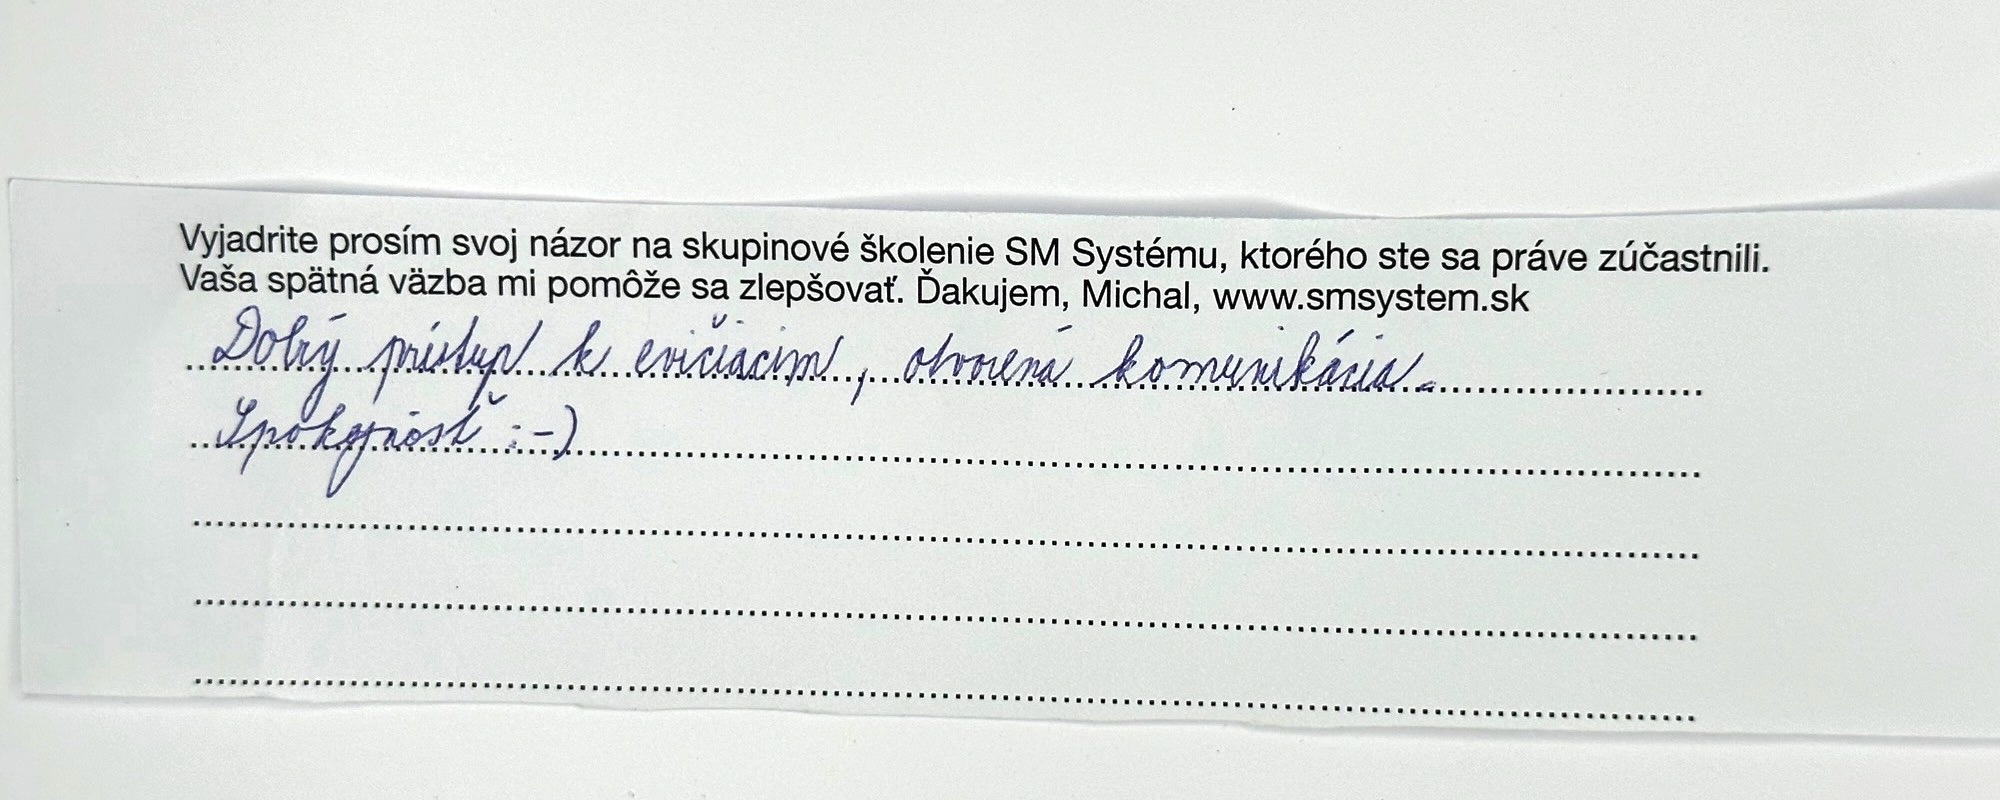 Vyjadrite prosím svoj názor na skupinové školenie SM Systému, ktorého ste sa práve zúčastnili.
Vaša spätná väzba mi pomôže sa zlepšovať. Ďakujem, Michal, www.smsystem.sk
Dobrý prístup k cvičiacim, otvorená komunikácia.
Spokojnosť :-)